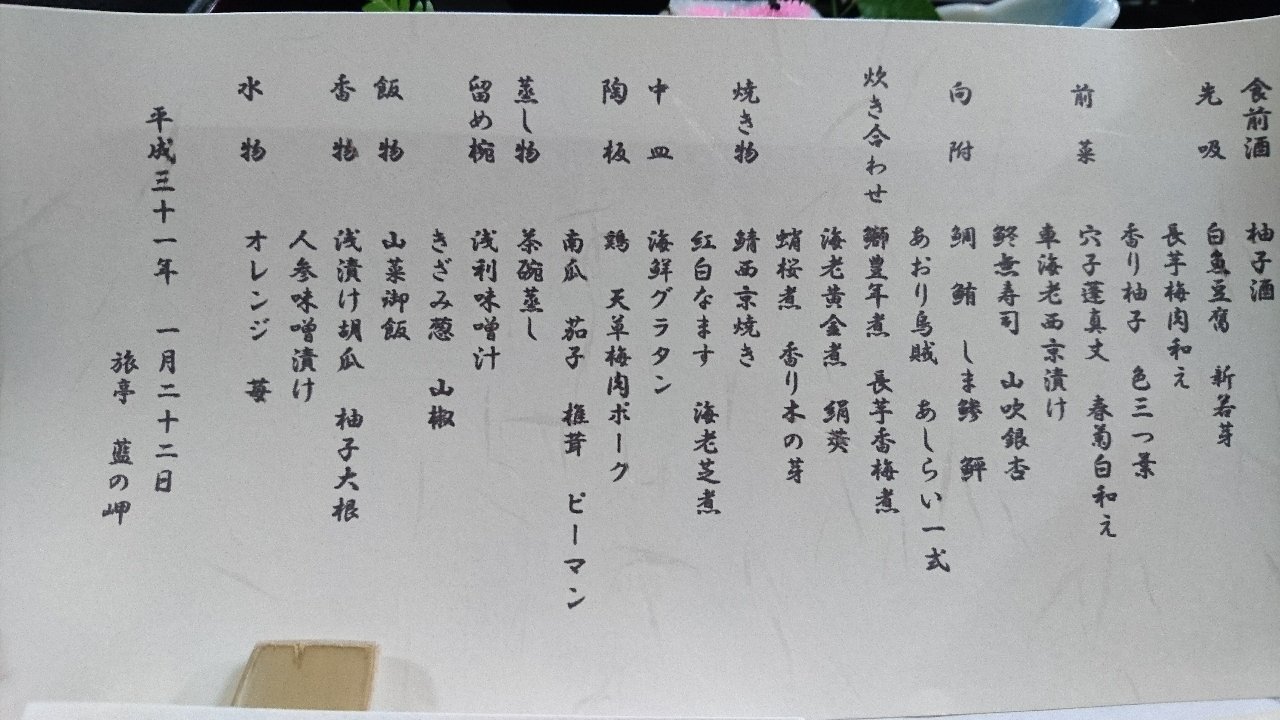 食前酒　柚子酒
先吸　白魚豆腐　新若芽
長芋梅肉和え
香り柚子　色三つ葉
前菜　穴子蓮真丈　春菊白和え
車海老西京漬け
鮗無寿司　山吹銀杏
向附　鯛　鮪　しま鯵　鮃
あおり烏賊　あしらい一式
炊き合わせ　鰤豊年煮　長芋香梅煮
海老黄金煮　絹莢
蛸桜煮　香り木の芽
焼き物　鯖西京焼き
紅白なます　海老芝煮
中皿　海鮮グラタン
陶板　鶏　天草梅肉ポーク
南瓜　茄子　椎茸　ピーマン
蒸し物　茶碗蒸し
留め椀　浅利味噌汁
きざみ葱　山椒
飯物　山菜御飯
香物　浅漬け胡瓜　柚子大根
人参味噌漬け
水物　オレンジ　苺
平成三十一年　一月二十二日
旅亭　藍の岬